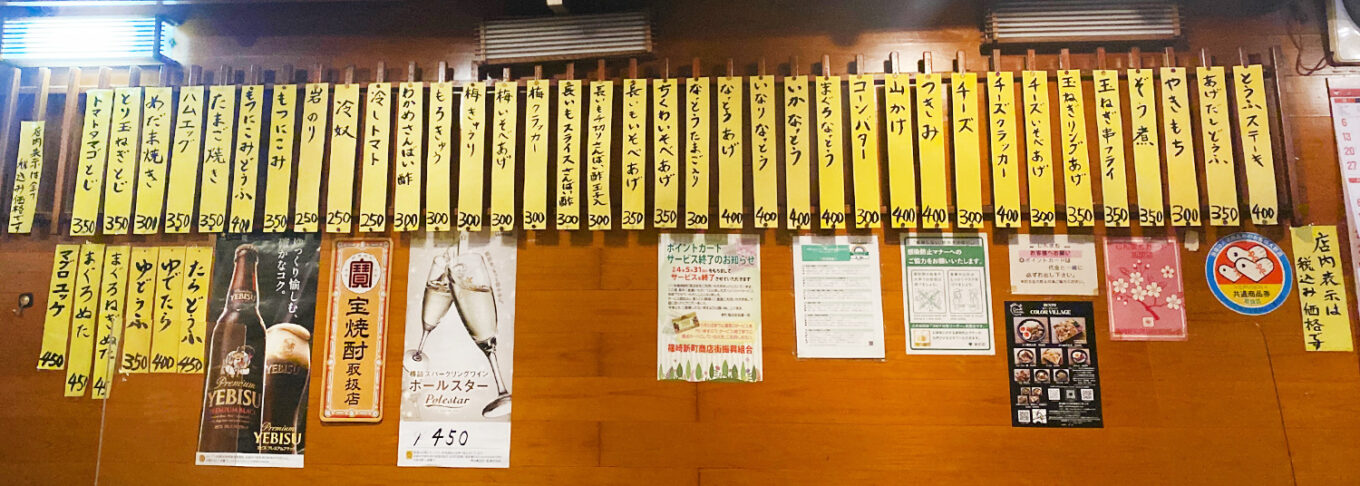 とうふステーキ 400
あげだしどうふ 350
やきもち 300
ぞう煮 300
玉ねぎ串フライ 300
玉ねぎリングあげ 350
チーズいそべあげ 300
チーズクラッカー 400
チーズ 300
つきみ 400
山かけ 400
コーンバター 300
まぐろなっとう 400
いかなっとう 400
いなりなっとう 400
なっとうあげ 400
なっとうたまご入り 300
ちくわいそべあげ 350
長いもいそべあげ 350
長いも千切りさんばい酢 300
長いもスライスさんばい酢 300
梅クラッカー 300
梅いそべあげ 300
梅きゅうり 300
もろきゅう 300
わかめさんばい酢 300
冷しトマト 250
冷奴 250
岩のり 250
もつにこみ 350
もつにこみどうふ 400
たまご焼き 350
ハムエッグ 350
めだま焼き 300
とり玉ねぎとじ 350
トマトタマゴとじ 350
店内表示は全て
税込み価格です
たらどうふ 450
ゆでたら 400
ゆどうふ 350
まぐろねぎぬた
まぐろぬた 450
マグロエッグ 450
Premium
YEBISU
PREMIUM BLACK
Premium
YEBISU
寶
宝焼酎
取扱店
樽詰スパークリングワイン
ポールスター
Polestar
450
ポイントカード
サービス終了のお知らせ
4年5月31日をもちまして
サービスを終了
させていただきます
篠崎新町商店街振興組合
感染防止マナーへの
ご協力をお願いいたします。
お客様へお願い
COLOR VILLAGE
共通商品券
取扱店
店内表示は
税込み価格です
6
13
20
27